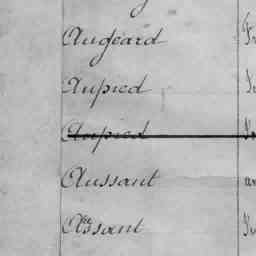 Augeard
Aupied
Aupied
Aussant
Assant